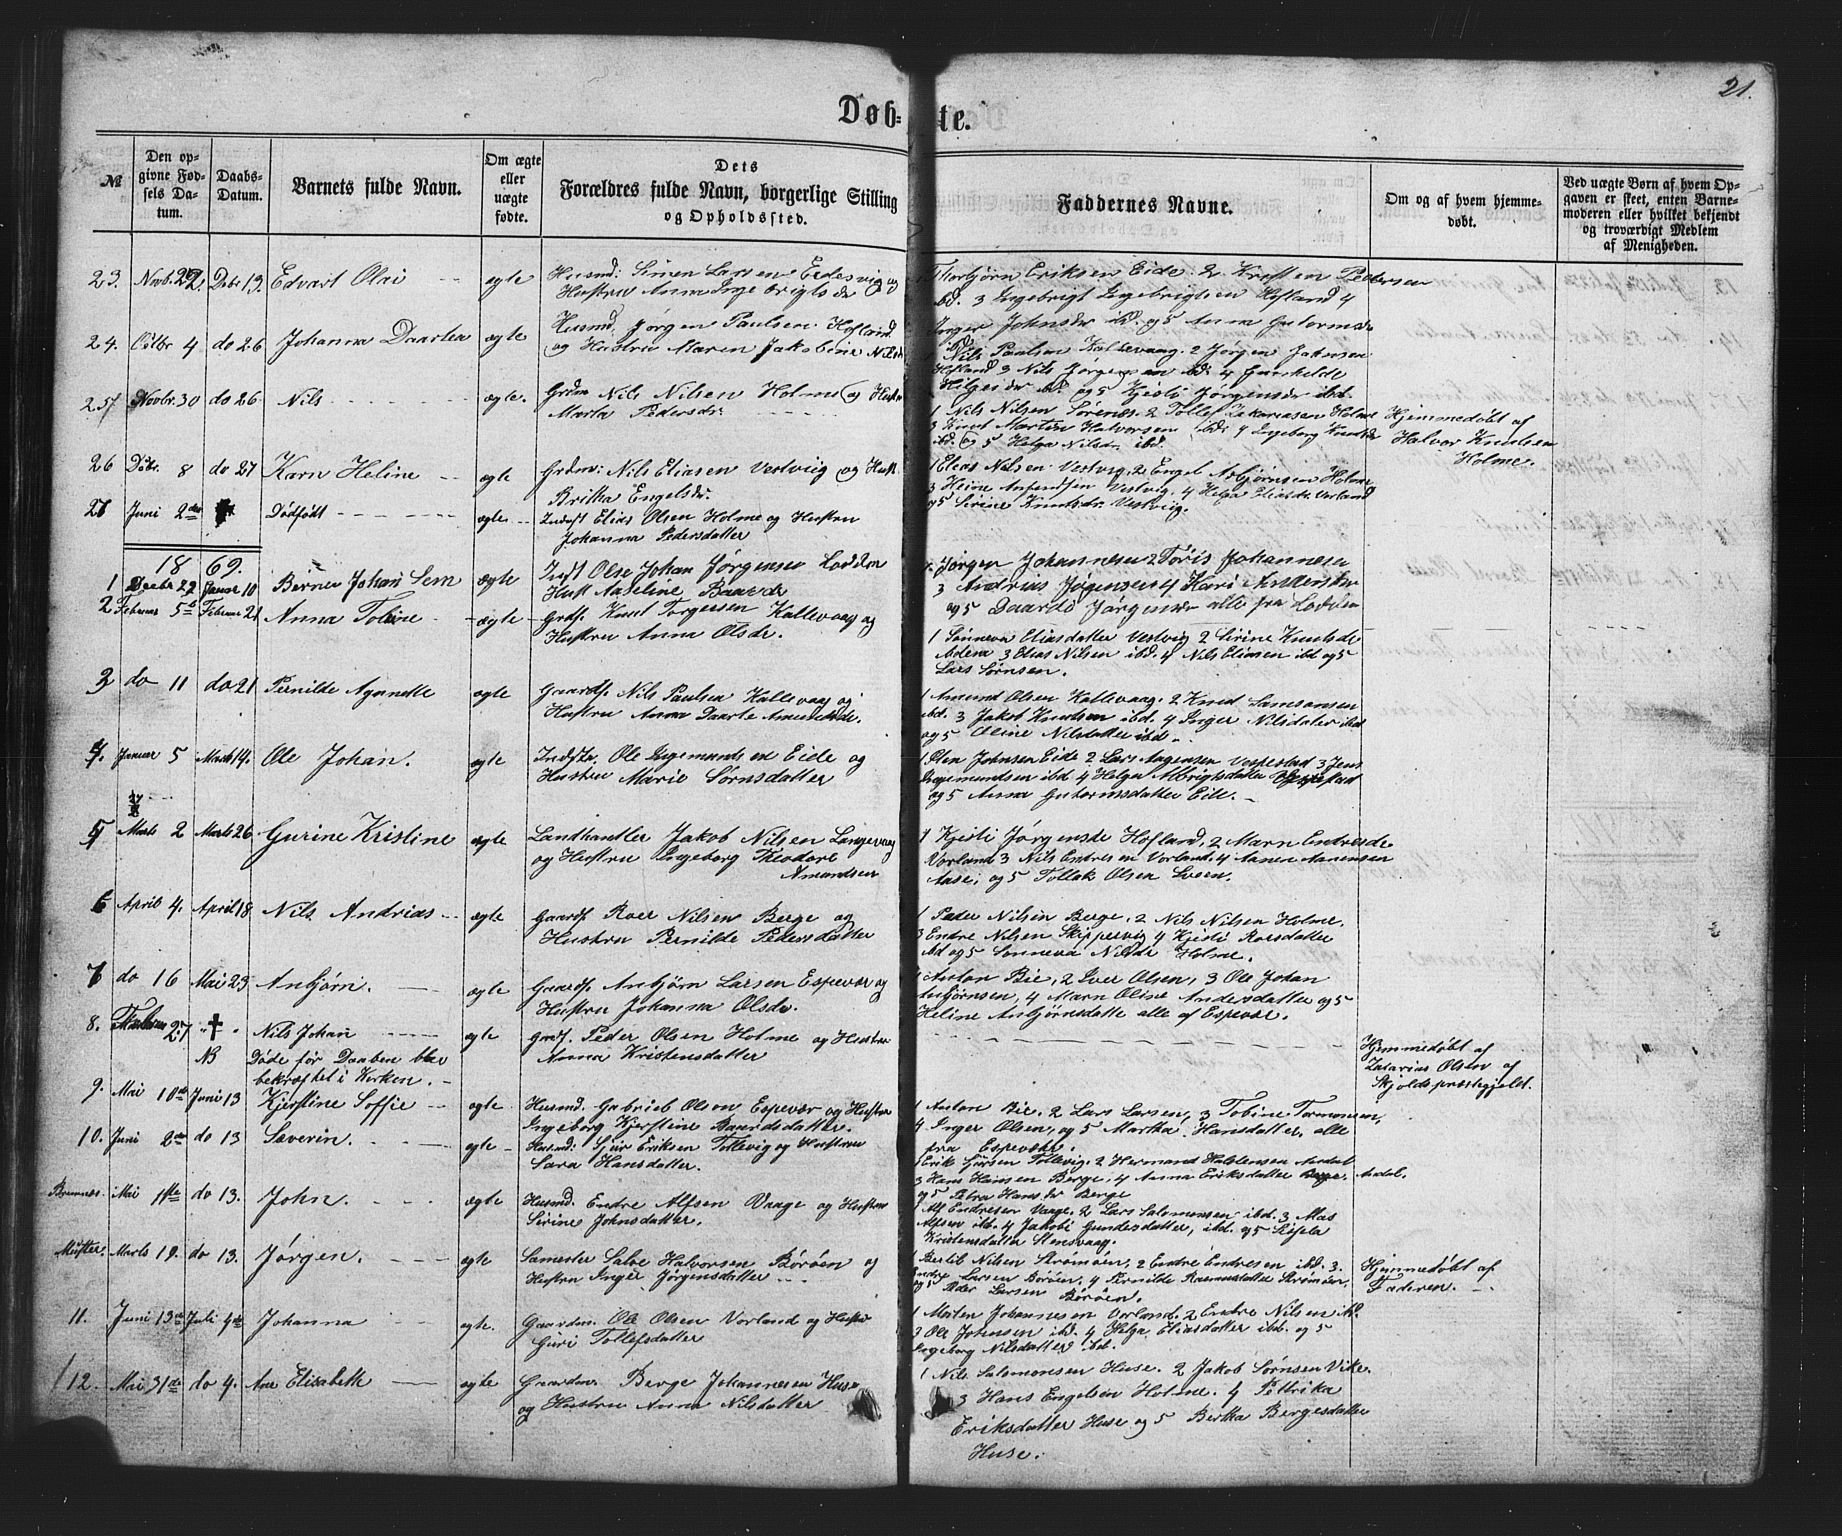 21.
Døb-te.
№
Den opgivne Fødsels Datum.
Daabs-Datum.
Barnets fulde Navn.
Om ægte eller uægte fødte.
Dets Forældres fulde Navn, borgerlige Stilling og Opholdssted.
Faddernes Navne.
Om og af hvem hjemmedøbt.
Ved uægte Børn af hvem Opgaven er skeet, enten Barnemoderen eller hvilket bekjendt og troværdigt Medlem af Menigheden.
23. Novb. 22. Debr 13. Edvart Olai ægte Husmd: Simen Larsen Eidesvig og
Hustru Anna Ingebrigtsdr
Thorbjørn Eriksen Eide. 2 Kristen Pedersen
ibd. 3 Ingebrigt Ingebrigtsen Hofland 4
Inger Johnsdr ibd. og 5 Anna Gutormsdr
24. Octbr 4 do 26 Johanna Daartea ægte Husmd. Jørgen Paulsen Hofland
og Hustru Maren Jakobine Nilsd
1 Nils Paulsen Kallevaag. 2 Jørgen Jakobsen
Hofland 3 Nils Jørgensen ibd: 4 Gunhilde
ibd. og 5 Kjisti Jørgensdr ibd.
25. Novbr. 30 do 26 Nils ægte. Grdm Nils Nilsen Holme og Hust
Marta Pedersdr
1 Nils Nilsen Sørenæs. 2 Tollef Zakariasen Holme
3 Knut Martin Halvorsen ibd: 4 Ingeborg Knutsdr
ibd. og 5 Helga Nilsdr. ibd.
Hjemmedøbt af
Halvor Knutsen
Holme.
26 Debr. 8 do 27 Karn Heline ægte Grdm: Nils Eliasen Vestviig og Hust.
Britha Engelsdr.
1 Elias Nilsen Vestvig. 2 Engel Asbjørnsen Holme
3 Heine Anfendsen Vestvig. 4 Helga Eliasdr Vorland
og 5 Sirine Knutsdr. Vestviig.
27 Juni 2den Dødfødt ægte Indst Elias Olsen Holme og Hustru
Johanna Pedersdatter
1869.
1 Decbr 22 Januar 10 Berner Johan Sem ægte Indst Ole Johan Jørgensen Lodden
Hust Aaseline Baardsdr
1 Jørgen Johannesen 2 Tøris Johannesen
3 Andrias Jørgensen 4 Kari
og 5 Daarte Jørgensdr alle fra Lodden
2 Februar 5te Februar 21 Anna Tobine ægte Grdf. Knut Torgersen Kallevaag og
Hustru Anna Olsdr.
1 Sønneva Eliasdatter Vestvig 2 Sirine Knutsdr
3 Elias Nilsen ibd. 4 Nils Eliasen ibd og 5
Lars Sørnsen.
3 do 11 do 21 Pernilde Aganette ægte Gaardf. Nils Paulsen Kallevaag og
Hustru Anna Daarte Amundsdr.
1 Amund Olsen Kallevaag. 2 Knud Samsonsen
ibd. 3 Jakob Knudsen ibd. 4 Inger Nilsdatter ibd
og 5 Oline Nilsdatter ibd.
4. Januar 5 Marts 14. Ole Johan. ægte Indste. Ole Ingemundsen Eide og
Hustru Marie Sørnsdatter
1 Sten Johnsen Eide 2 Lars Aagensen Vespestad 3 Jens
Ingemundsen ibd 4 Helga Albrigtsdatter Vespestad
og 5 Anna Gutormsdatter Eide.
5 Marts 2 Marts 26 Gurine Kristine ægte Landhandler Jakob Nilsen Langevaag
og Hustru Ingeborg Theodore
Amundsen
1 Kjisti Jørgensdr Hofland. 2 Marn Endresdr
Vorland 3 Nils Endresen Vorland. 4 Aanen Aanensen
Aase; og 5 Tollak Olsen Sveen.
6 April 4. April 18 Nils Andrias ægte Gaardf. Roer Nilsen Berge og
Hustru Pernilde Pedersdatter
1 Peder Nilsen Berge. 2 Nils Nilsen Holme.
3 Endre Nilsen Skippervig 4 Kjisti Rorsdatter
ibd og 5 Sonneva Nilsdr Holme.
7 do 16 Mai 23 Anbjørn. ægte Gaardf. Anbjørn Larsen Espevær og
Hustru Johanna Olsdr.
1 Anton Bie, 2 Iver Olsen, 3 Ole Johan
Anbjørnsen, 4 Marn Oline Andersdatter og 5
Heline Anbjørnsdatte alle af Espevær.
8. Februar 27 † Nils Johan ægte grdf. Peder Olsen Holme og Hustru
NB Døde før Daaben blev Anna Kristensdatter
bekræftet i Kirken.
Hjemmedøbt af
Zakarias Olsen af
Skjolds præstegjeldt.
9. Mai 10de Juni 13 Kjerstine Soffie ægte Husmd. Gabriel Olsen Espevær og Hustru
Ingeborg Kjerstine Baardsdatter.
1 Anton Bie. 2 Lars Larsen, 3 Tobine Tormonsen,
4 Inger Olsen, og 5 Martha Hansdatter, alle
fra Espevær.
10. Juni 2den do 13 Severin. ægte Husmd: Sjur Eriksen Tollevig og Hustru
Sara Hansdatter.
Erik Sjursen Tollevig. 2 Hermand Haldensen Andal
3 Hans Hansen Berge. 4 Anna Eriksdatter Berge. Andal.
og 5 Petra Hansdr Berge
Bremnes. Mai 1ste do 13. John. ægte Husmd. Endre Alfsen Vaage og Hustru
Sirine Johnsdatter.
1 Alf Endresen Vaage. 2 Lars Salomonsen ibd. 3 Mas
Alfsen ibd. 4 Jakobi Gundersdatter, ibd. og 5
Kristensdatter Stensvaag.
Moster. Marts 19. do 13. Jørgen. ægte Samester Salve Halvorsen Børøen og
Hustru Inger Jørgensdatter
1 Bertel Nilsen Strømøen, 2 Endre Endresen ibd. 3.
Endre Larsen Børøen, 4 Pernilde Rasmusdatter Strømøen,
og 5 Peder Larsen Børøen.
Hjemmedøbt af
Faderen.
11. Juni 13de Juli 4de Johanna ægte. Gaardm. Ole Olsen Vorland og Hustru
Guri Tollefsdatter
1 Morten Johannesen Vorland. 2 Endre Nilsen ibd.
3 Ole Johnsen ibd. 4 Helga Eliasdatter ibd. og 5
Ingeborg Nilsdatter ibd.
12. Mai 31de do 4. Ane Elisabeth ægte Gaardm. Berge Johannesen Huse
og Hustru Anna Nilsdatter
1 Nils Salomonsen Huse. 2 Jakob Sørnsen Vike.
3 Hans Engelsen Holme. 4 Pettrika
Eriksdatter Huse og 5 Bertha Bergesdatter
Huse.